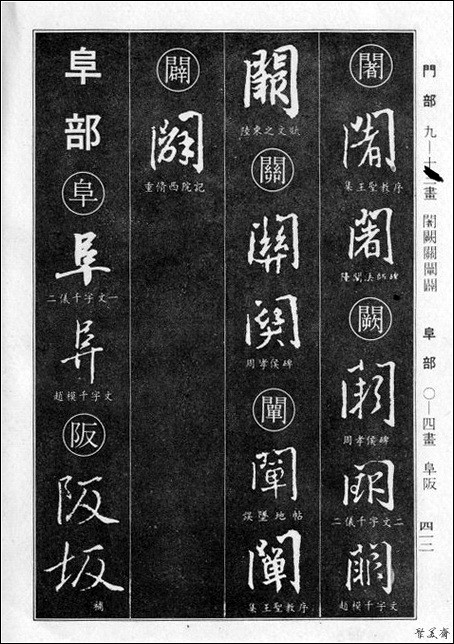 門部 九—十二畫 闍闕關闡闢 阜部 〇—四畫 阜阪
闍
闍
集王聖教序
闍
隆闡法師碑
闕
闕
周孝侯碑
闕
二儀千字文二
闕
趙模千字文
闕
陸柬之文賦
關
關
關
周孝侯碑
闡
闡
誤墜地帖
闡
集王聖教序
闢
闢
重脩西院記
阜部
阜
阜
二儀千字文一
阜
趙模千字文
阪
阪
阪
補